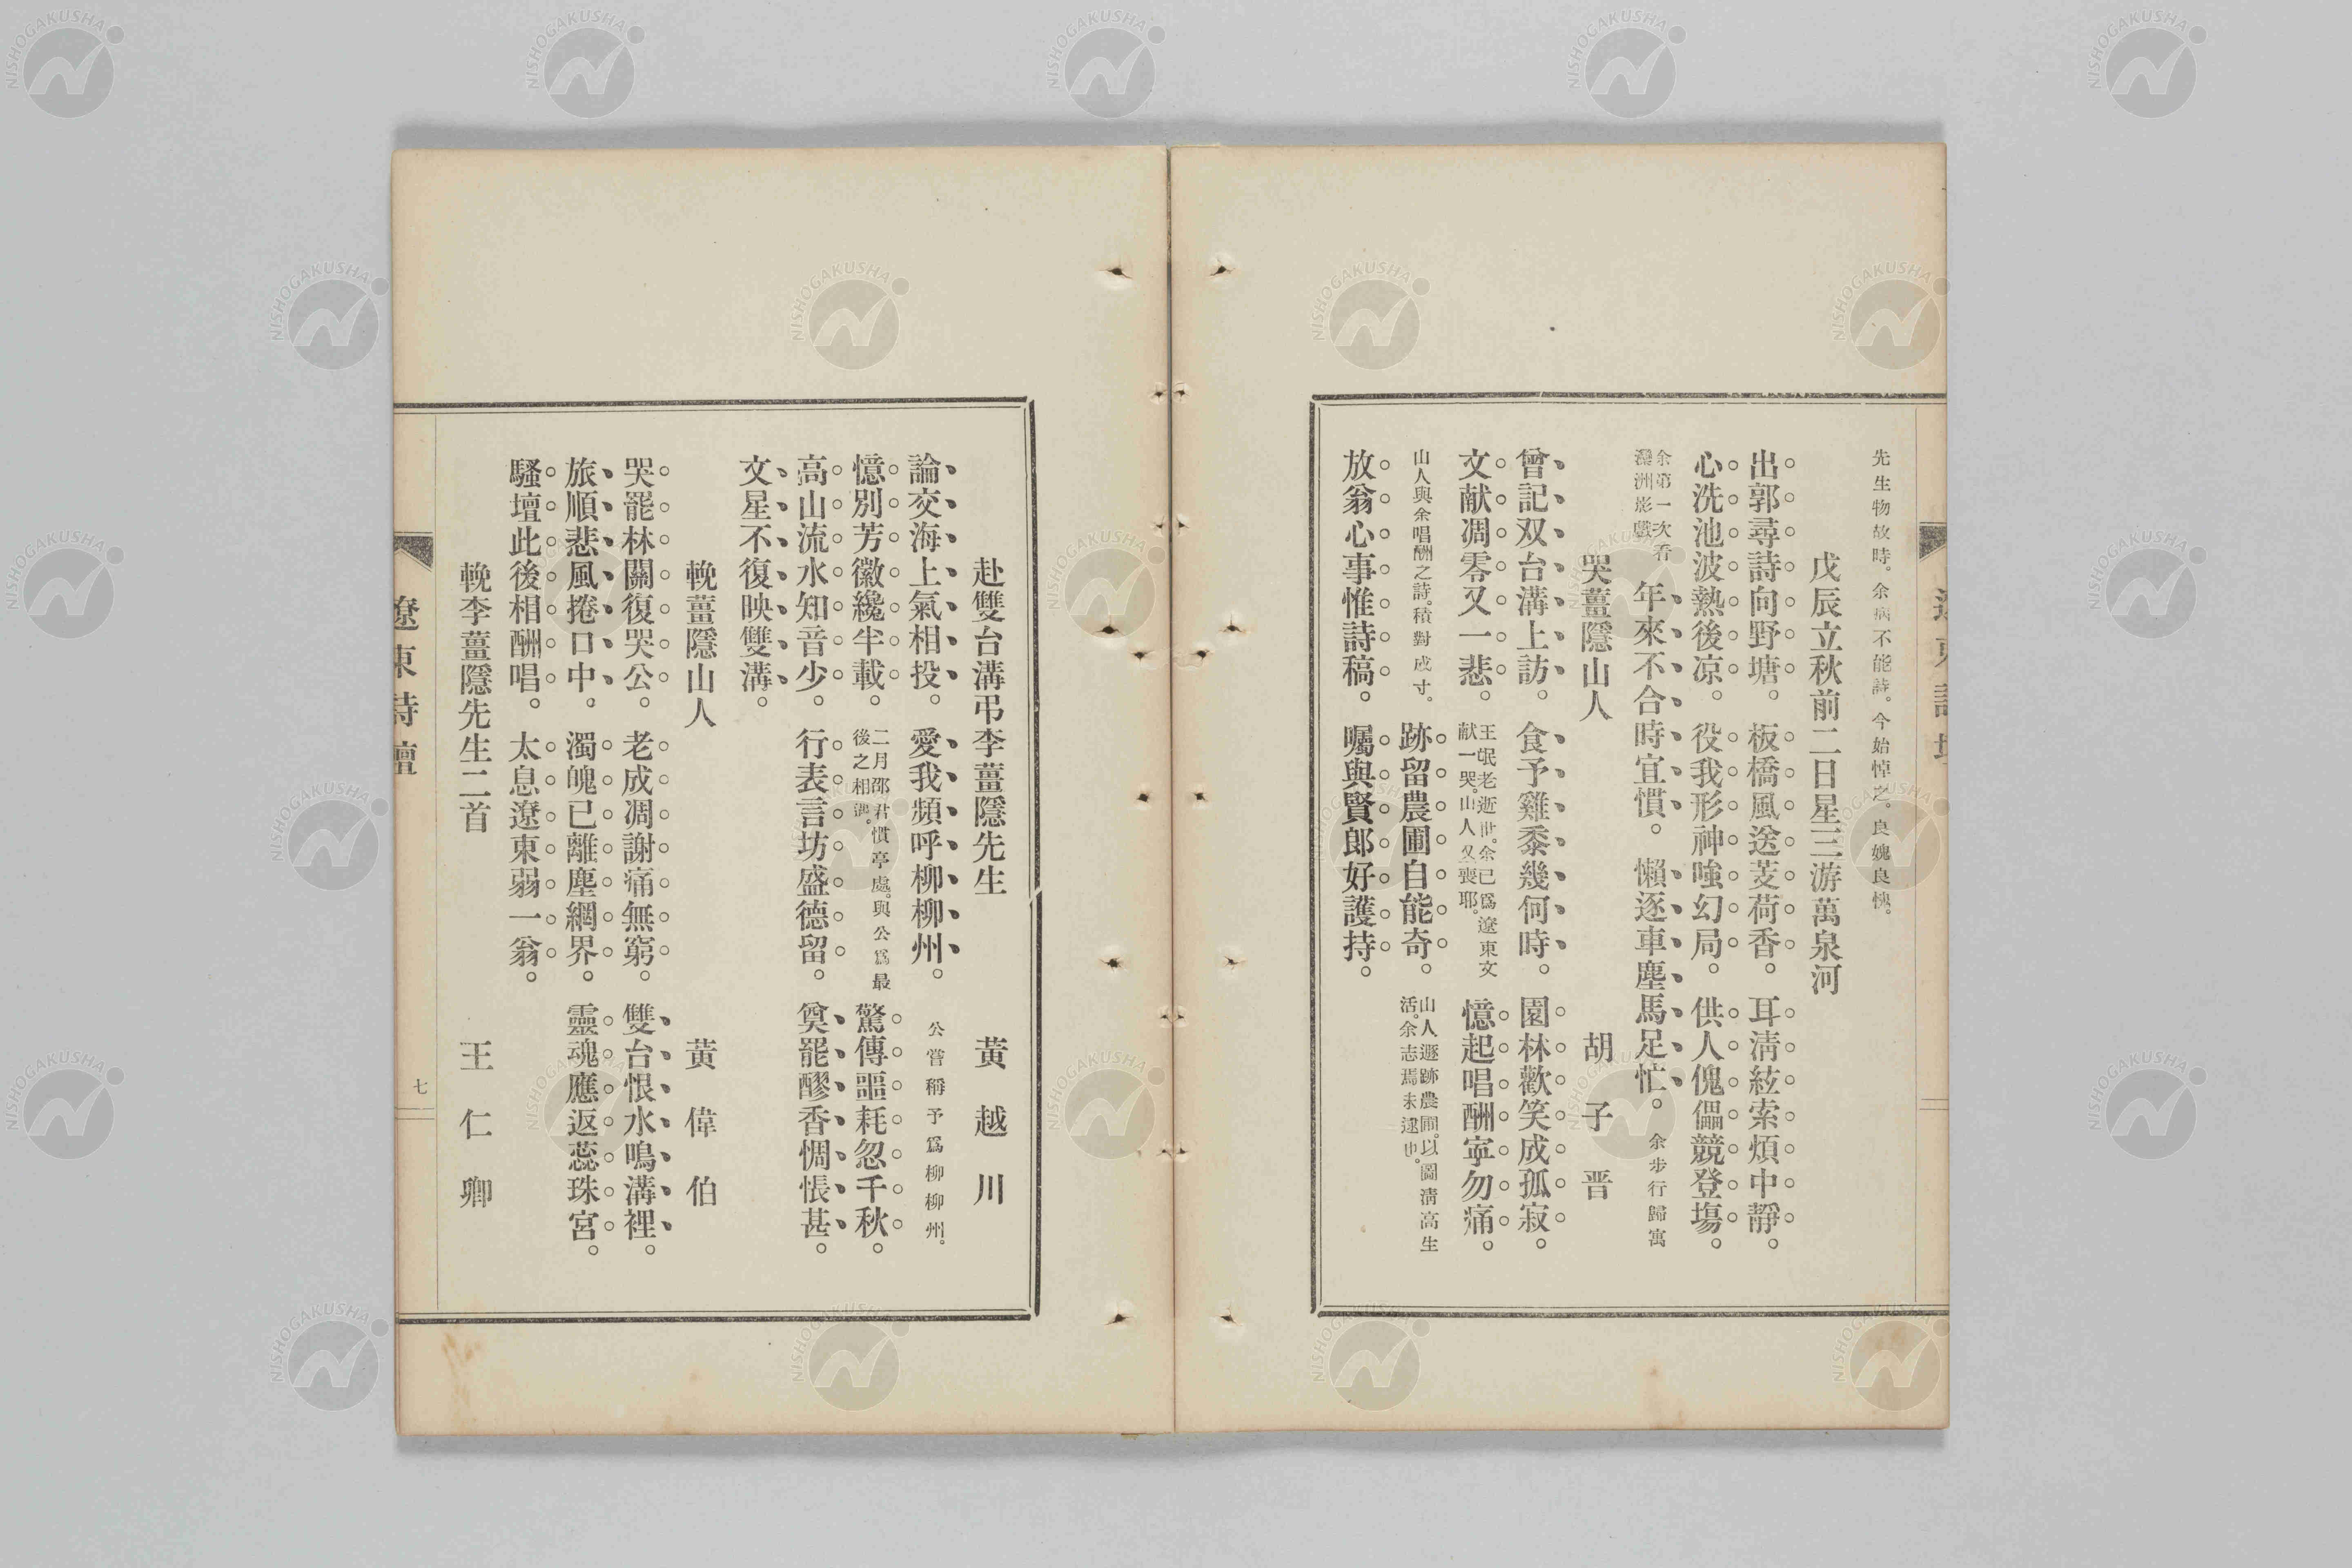 先生物故時。余病不能詩。今始悼之。良媿良愧。
戊辰立秋前二日星三游萬泉河
出郭尋詩向野塘。板橋風送芰荷香。耳淸絃索煩中靜。
心洗池波熱後凉。役我形神嗤幻局。供人傀儡競登塲。
余第一次看
灤洲影戲
年來不合時宜慣。懶逐車塵馬足忙。余步行歸寓
哭薑隱山人
胡子晋
曾記双台溝上訪。食予雞黍幾何時。園林歡笑成孤寂。
文献凋零又一悲。
王岷老逝世。余已爲遼東文
献一哭。山人又喪耶。
憶起唱酬寜勿痛。
山人與余唱酬之詩。積對成寸。
跡留農圃自能奇。
山人遯跡農圃。以圖淸高生
活。余志焉未逮也。
放翁心事惟詩稿。囑與賢郎好護持。
赴雙台溝弔李薑隱先生
黃越川
論交海上氣相投。愛我頻呼柳柳州。公嘗稱予爲柳柳州。
憶別芳徽纔半載。
二月邵君慣亭處。與公爲最
後之相
驚傳噩耗忽千秋。
高山流水知音少。行表言坊盛德留。奠罷醪香惆悵甚。
文星不復映雙溝。
輓薑隱山人
黃偉伯
哭罷林關復哭公。老成凋謝痛無窮。雙台恨水鳴溝裡。
旅順悲風捲口中。濁魄已離塵網界。靈魂應返蕊珠宮。
騷壇此後相酬唱。太息遼東弱一翁。
輓李薑隱先生二首
王仁卿
遼東詩壇
七
NISHOGAKUSHA